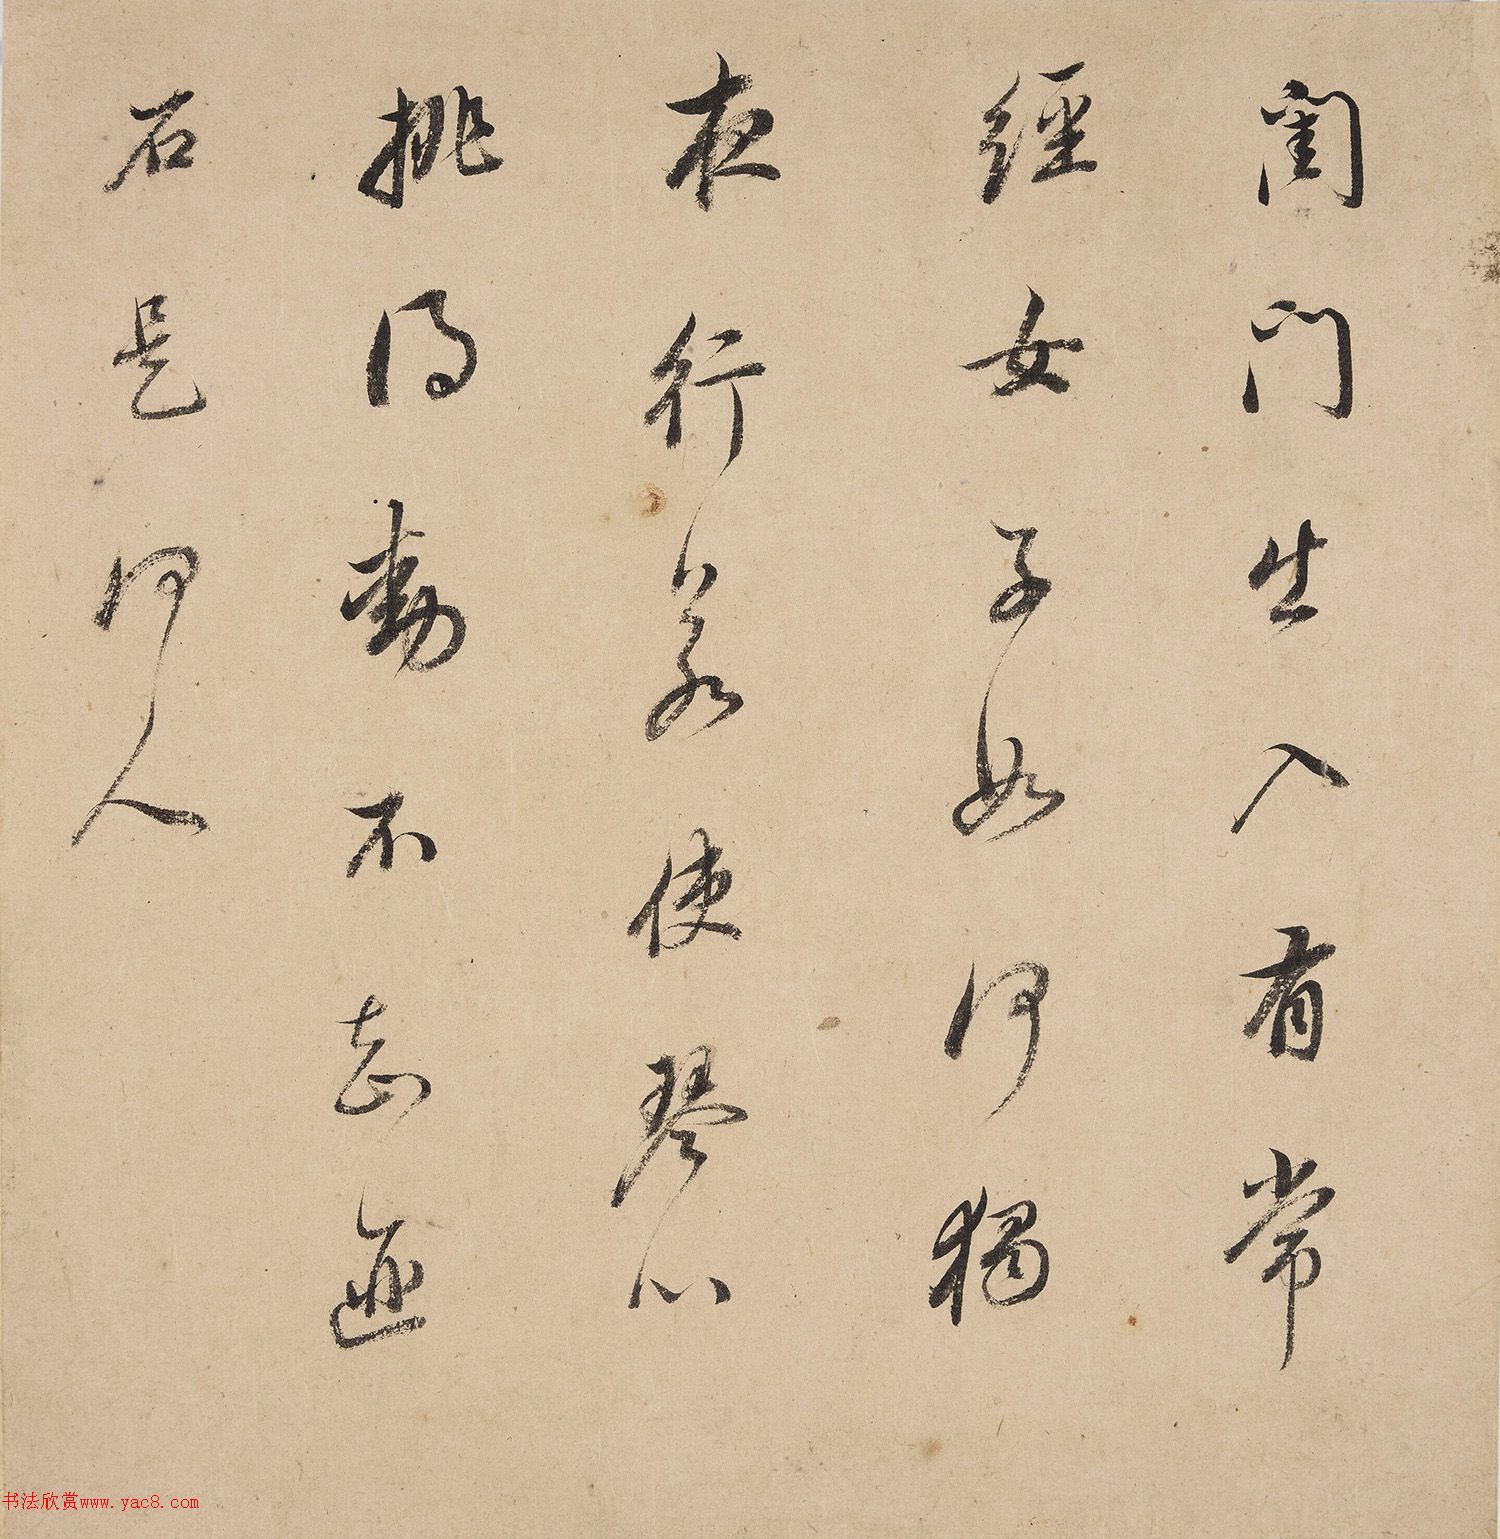 閨門出入有常
經女子如何獨
夜行若使琴心
挑得動不志匪
石是何人
书法欣赏www.yac8.com